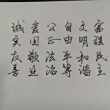 富强民主
文明和谐
自由平等
公正法治
爱国敬业
诚实友善